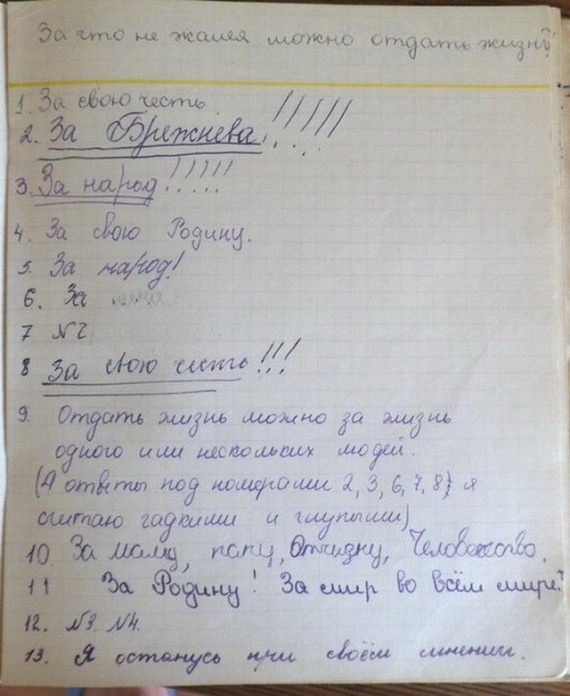 За что не жалея можно отдать жизнь?
1. За свою честь.
2. За Брежнева!!!!!
3. За народ!!!!!
4. За свою Родину.
5. За народ!
6. За
7 №2
8 За свою честь!!!
9. Отдать жизнь можно за жизнь
одного или нескольких людей.
(А ответы под номерами 2, 3, 6, 7, 8, я
считаю гадкими и глупыми)
10. За маму, папу, Отчизну, Человечество.
11 За Родину! За мир во всём мире!
12. №3. №4.
13. Я останусь при своём мнении.